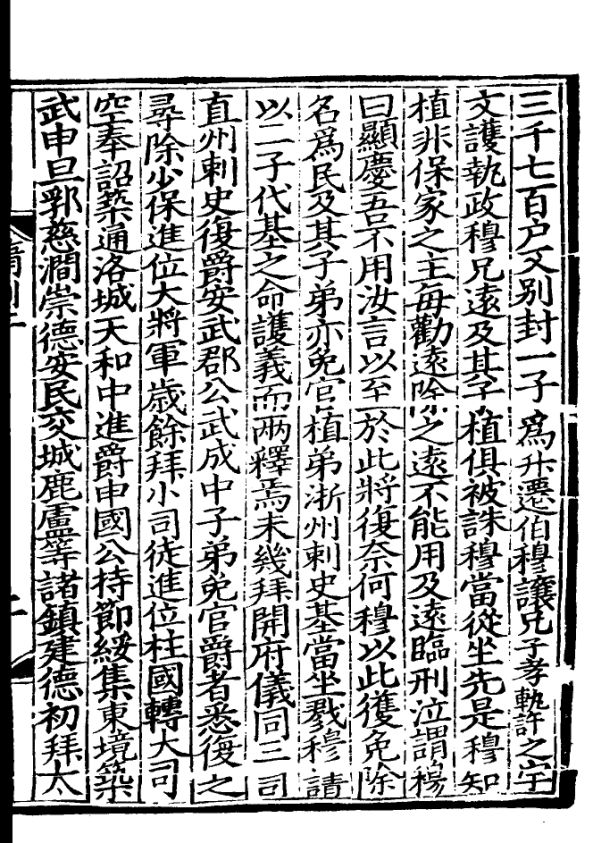 三千七百户又別封一子爲升遷伯穆讓兄子孝軌許之宇
文護執政穆兄遠及其子植俱被誅穆當從坐先是穆知
植非保家之主每勸遠除之遠不能用及遠臨刑泣謂穆
曰顯慶吾不用汝言以至於此將復奈何穆以此獲免除
名爲民及其子弟亦免官植弟浙州刺史基當坐戮穆請
以二子代基之命護義而兩釋焉未幾拜開府儀同三司
直州刺史復爵安武郡公武成中子弟免官爵者悉復之
尋除少保進位大將軍歲餘拜小司徒進位柱國轉大司
空奉詔築通洛城天和中進爵申國公持節綏集東境築
武申旦郛慈澗崇德安民交城鹿盧等諸鎮建德初拜太